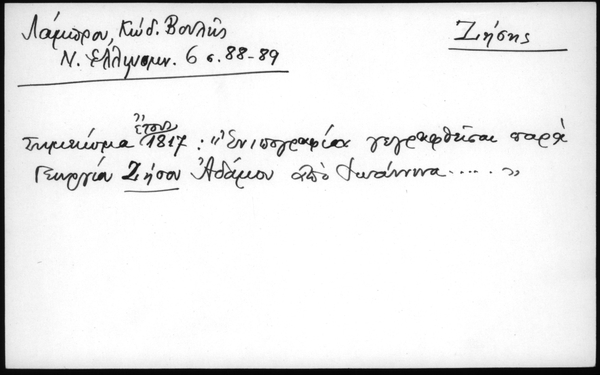 Λάμπρου, Κώδ. Βουλῆς
Ζήσης
Ν. Ἑλληνομν. 6 σ. 88-89
ἔτους
Σημείωμα 1817 : "Ἐπιγραφίαι γεγραφθεῖσαι παρὰ
Γεωργίου Ζήσου Ἀδάμου ἀπὸ Ἰωάννινα ..... "